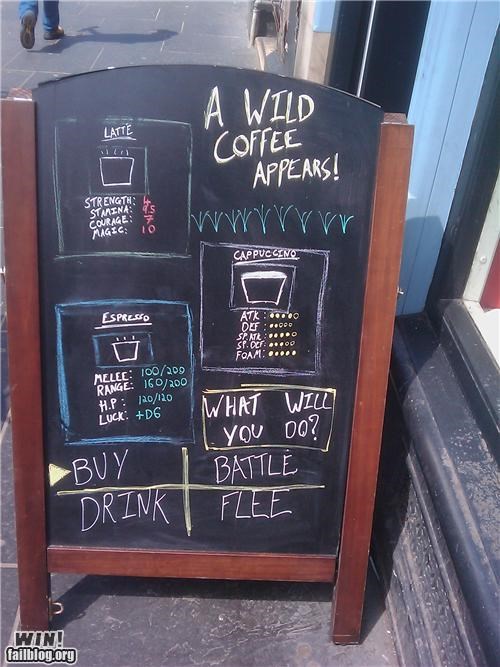 A WILD
COFFEE
APPEARS!
LATTE
STRENGTH: 4
STAMINA: 9.5
COURAGE: 7
MAGIC: 10
CAPPUCCINO
ATK:
DEF:
SP.ATK:
SP.DEF:
FOAM:
ESPRESSO
MELEE: 100/200
RANGE: 160/200
H.P: 120/120
LUCK: +D6
WHAT WILL
YOU DO?
BUY BATTLE
DRINK FLEE
WIN!
failblog.org